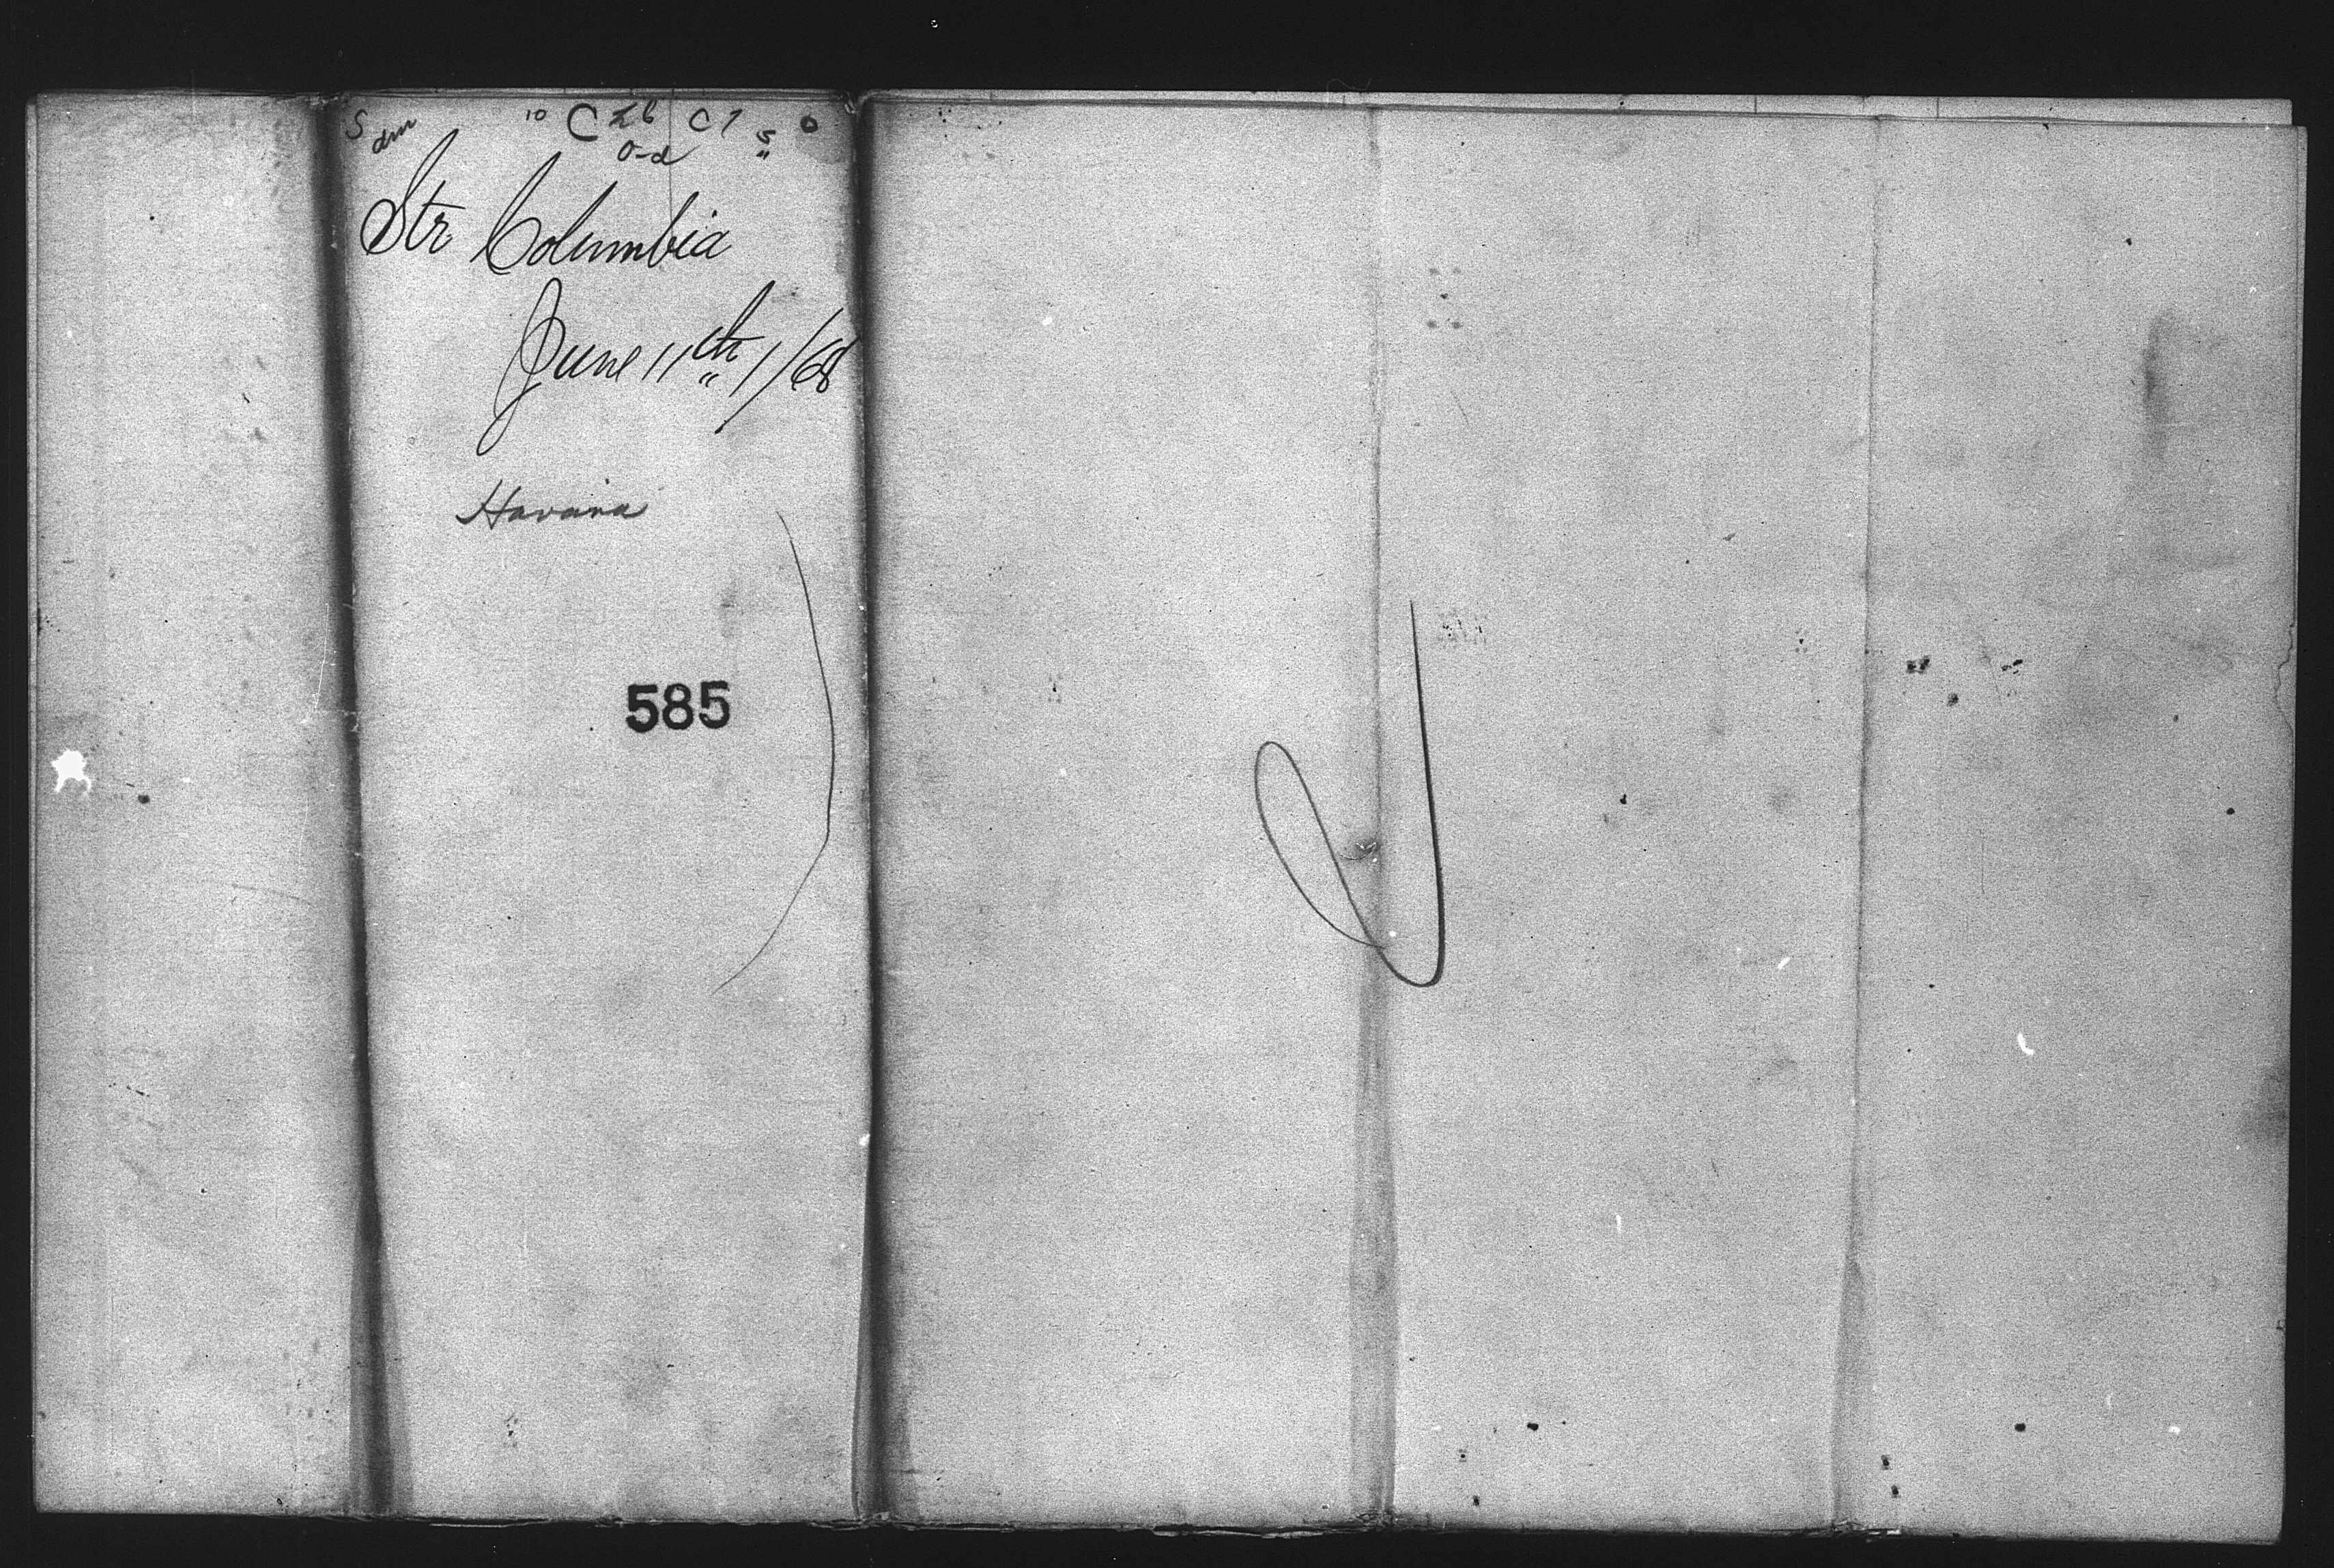 S dm 10 C 26 C 7 5 0
0-d
Str Columbia
June 11th 1/68
Havana
585